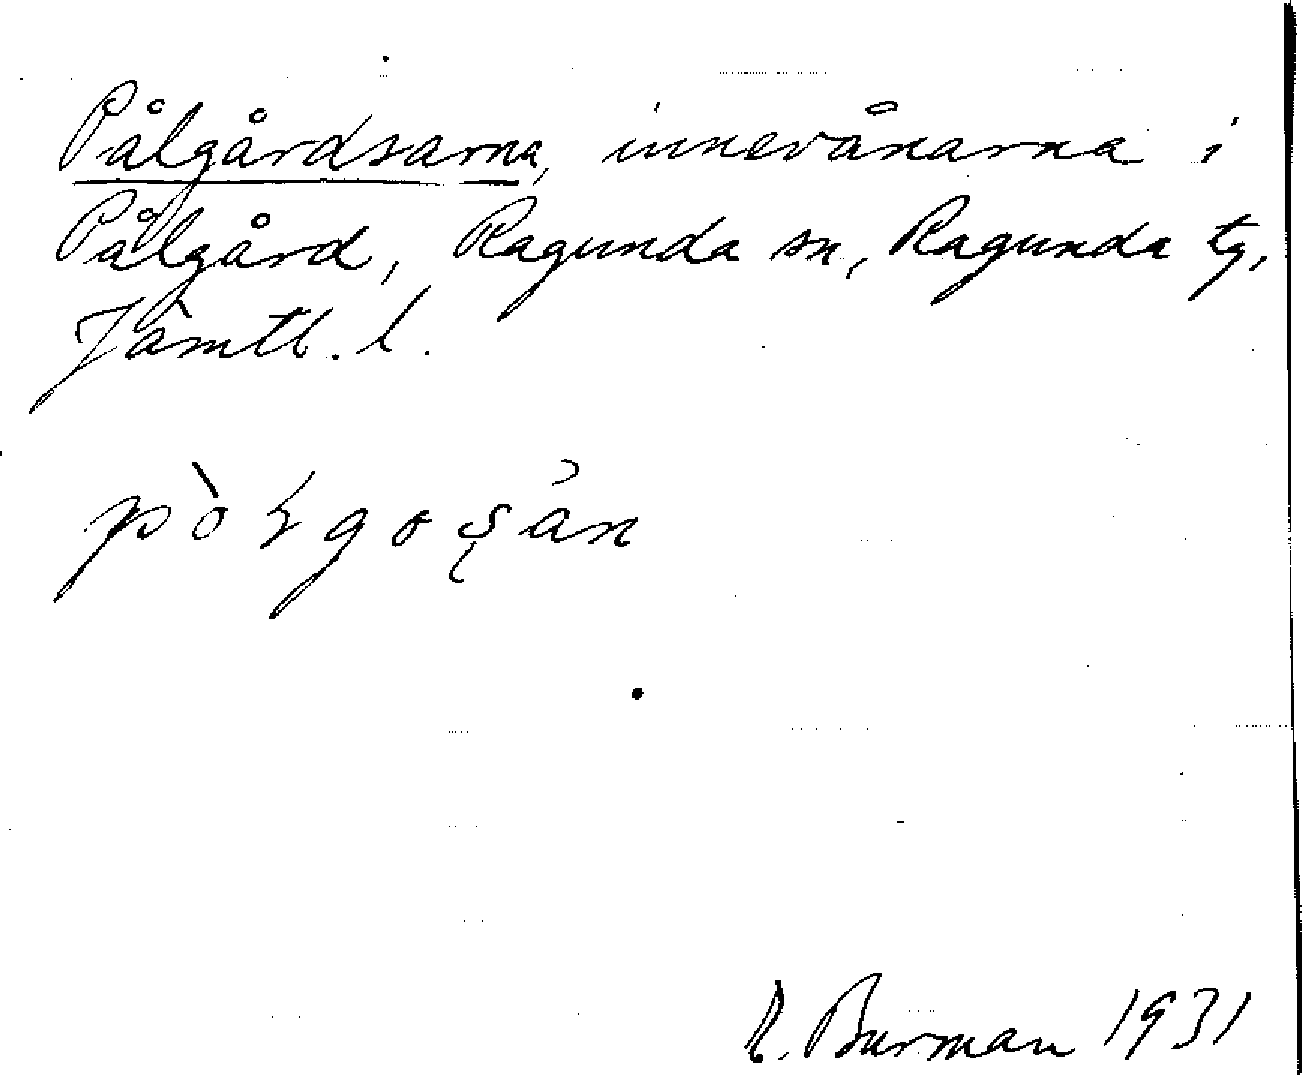 Pålgårdsarna, innevånarna i
Pålgård, Ragunda sn, Ragunda tg,
Jämtl. l.
R. Burman 1931